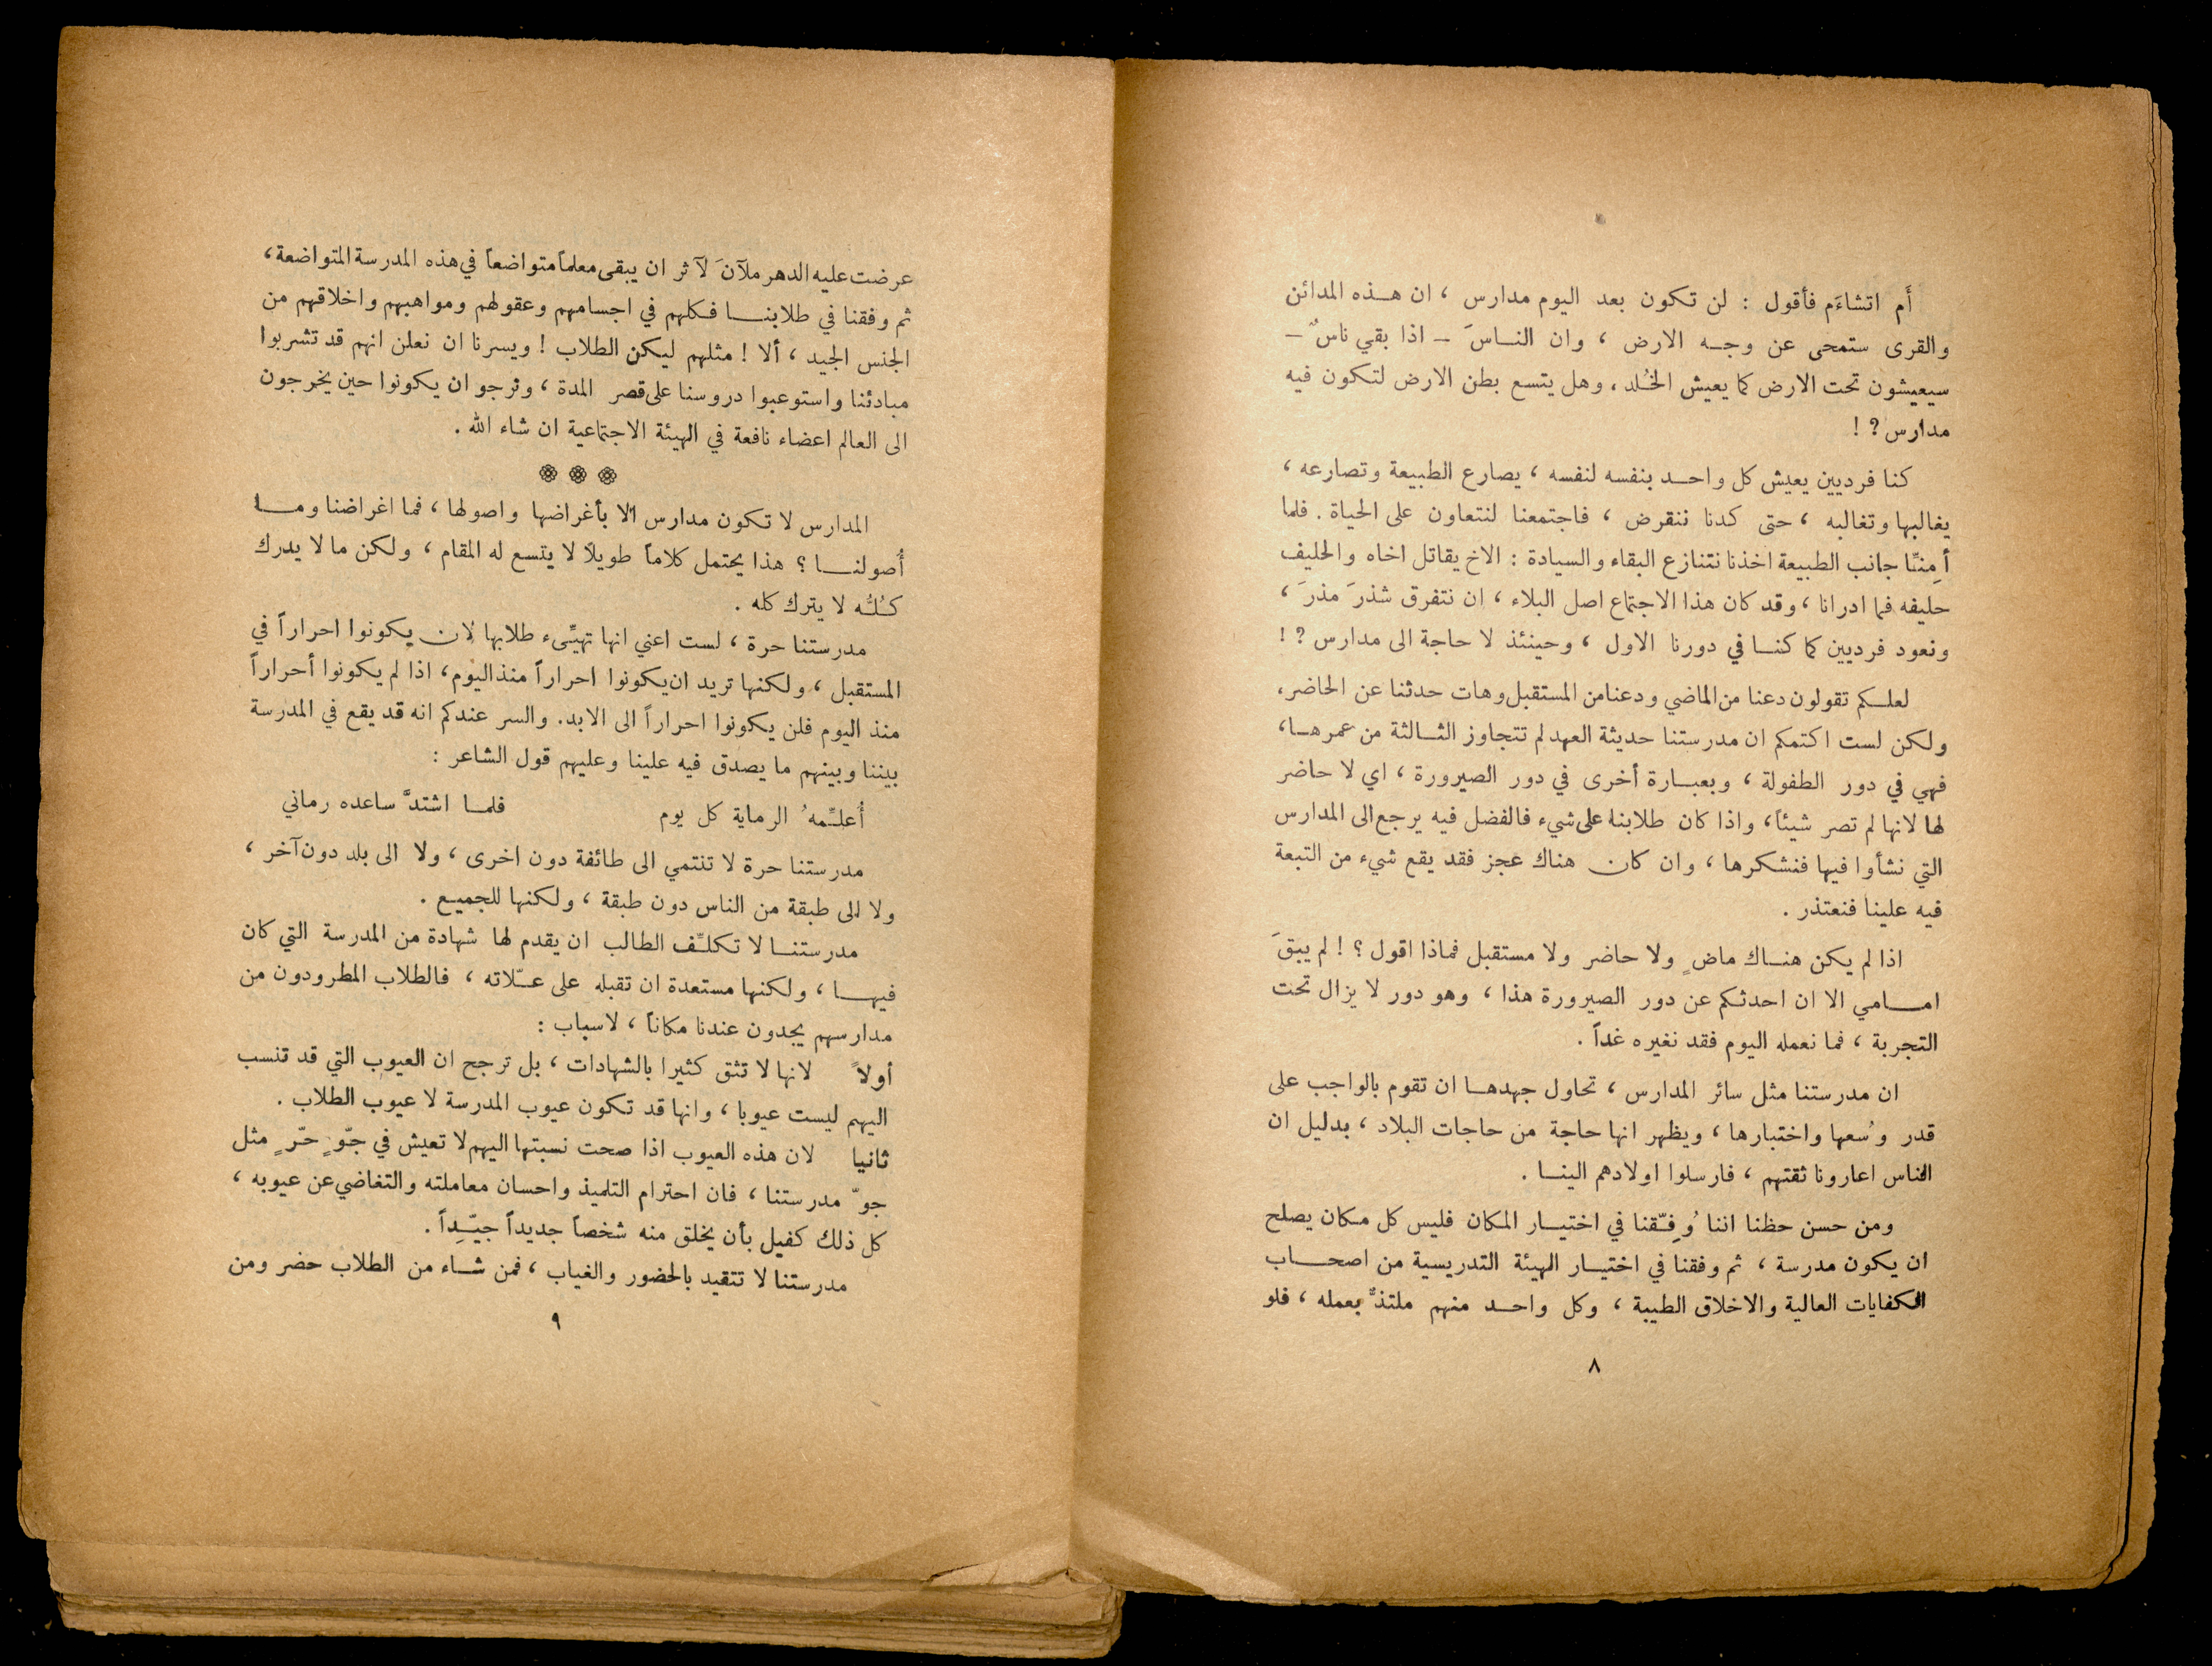 أَم اتشاءَم فأقول : لن تكون بعد اليوم مدارس ، ان هـذه المدائن
والقرى ستمحى عن وجـه الارض ، وان النـاسَ – اذا بقي ناسٌ –
سيعيشون تحت الارض كما يعيش الخُلد ، وهل يتسع بطن الارض لتكون فيه
مدارس ? !
كنا فرديين يعيش كل واحـد بنفسه لنفسه ، يصارع الطبيعة وتصارعه ،
يغالبها وتغالبه ، حتى كدنا ننقرض ، فاجتمعنا لنتعاون على الحياة . فلما
أمِنّا جانب الطبيعة اخذنا نتنازع البقاء والسيادة : الاخ يقاتل اخاه والحليف
حليفه فما ادرانا ، وقد كان هذا الاجتماع اصل البلاء ، ان نتفرق شذرَ مذرَ ،
ونعود فرديين كما كنـا في دورنا الاول ، وحينئذ لا حاجة الى مدارس ? !
لعلـكم تقولون دعنا من الماضي ودعنا من المستقبل وهات حدثنا عن الحاضر ،
ولكن لست اكتمكم ان مدرستنا حديثة العهد لم تتجاوز الثـالثة من عمرهـا ،
فهي في دور الطفولة ، وبعبـارة أخرى في دور الصيرورة ، اي لا حاضر
لها لانها لم تصر شيئاً ، واذا كان طلابنا على شيء فالفضل فيه يرجع الى المدارس
التي نشأوا فيها فنشكرها ، وان كان هناك عجز فقد يقع شيء من التبعة
فيه علينا فنعتذر .
اذا لم يكن هنـاك ماضٍ ولا حاضر ولا مستقبل فماذا اقول ؟ ! لم يبقَ
امـامي الا ان احدثكم عن دور الصيرورة هذا ، وهو دور لا يزال تحت
التجربة ، فما نعمله اليوم فقد نغيره غداً .
ان مدرستنا مثل سائر المدارس ، تحاول جهدهـا ان تقوم بالواجب على
قدر وُسعها واختبارها ، ويظهر انها حاجة من حاجات البلاد ، بدليل ان
الناس اعارونا ثقتهم ، فارسلوا اولادهم الينـا .
ومن حسن حظنا اننا وُفِّقنا في اختيـار المكان فليس كل مكان يصلح
ان يكون مدرسة ، ثم وفقنا في اختيـار الهيئة التدريسية من اصحـاب
الكفايات العالية والاخلاق الطيبة ، وكل واحـد منهم ملتذٌّ بعمله ، فلو
٨
عرضت عليه الدهر ملآنَ لآثر ان يبقى معلماً متواضعاً في هذه المدرسة المتواضعة ،
ثم وفقنا في طلابنـا فـكلهم في اجسامهم وعقولهم ومواهبهم واخلاقهم من
الجنس الجيد ، ألا ! مثلهم ليكن الطلاب ! ويسرنا ان نعلن انهم قد تشربوا
مبادئنا واستوعبوا دروسنا على قصر المدة ، ونرجو ان يكونوا حين يخرجون
الى العالم اعضاء نافعة في الهيئة الاجتماعية ان شاء الله .
المدارس لا تكون مدارس الا بأغراضها واصولها ، فما اغراضنا ومـا
أُصولنـا ؟ هذا يحتمل كلاماً طويلاً لا يتسع له المقام ، ولكن ما لا يدرك
كـُلُّه لا يترك كله .
مدرستنا حرة ، لست اعني انها تهيّىء طلابها لان يكونوا احراراً في
المستقبل ، ولكنها تريد ان يكونوا احراراً منذ اليوم ، اذا لم يكونوا أحراراً
منذ اليوم فلن يكونوا احراراً الى الابد . والسر عندكم انه قد يقع في المدرسة
بيننا وبينهم ما يصدق فيه علينا وعليهم قول الشاعر :
أُعلـِّمهُ الرماية كل يوم فلمـا اشتدَّ ساعده رماني
مدرستنا حرة لا تنتمي الى طائفة دون اخرى ، ولا الى بلد دون آخر ،
ولا الى طبقة من الناس دون طبقة ، ولكنها للجميع .
مدرستنـا لا تكلـِّف الطالب ان يقدم لها شهادة من المدرسة التي كان
فيهـا ، ولكنها مستعدة ان تقبله على عـّلاته ، فالطلاب المطرودون من
مدارسهم يجدون عندنا مكاناً ، لاسباب :
أولاً لانها لا تثق كثيرا بالشهادات ، بل ترجح ان العيوب التي قد تنسب
اليهم ليست عيوبا ، وانها قد تكون عيوب المدرسة لا عيوب الطلاب .
ثانيا لان هذه العيوب اذا صحت نسبتها اليهم لا تعيش في جّوٍ حّرٍ مثل
جوّ مدرستنا ، فان احترام التلميذ واحسان معاملته والتغاضي عن عيوبه ،
كل ذلك كفيل بأن يخلق منه شخصاً جديداً جيّـِداً .
مدرستنا لا تتقيد بالحضور والغياب ، فمن شـاء من الطلاب حضر ومن
٩